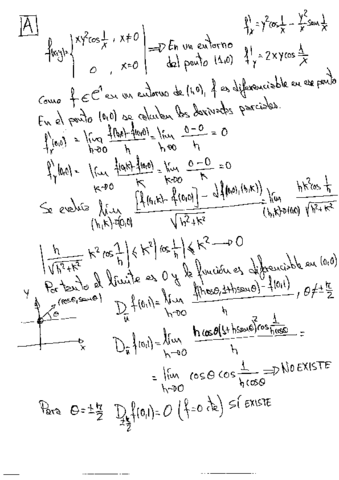 A
f(x,y) = { xy² cos 1/x , x≠0
0 , x=0
⟹ En un entorno del punto (1,0)
f'x = y² cos 1/x - y²/x sen 1/x
f'y = 2xy cos 1/x
Como f ∈ C¹ en un entorno de (1,0), f es diferenciable en ese punto
En el punto (0,0) se calculan las derivadas parciales.
f'x(0,0) = lím h→0 f(h,0)-f(0,0) / h = lím h→0 0-0 / h = 0
f'y(0,0) = lím k→0 f(0,k)-f(0,0) / k = lím k→0 0-0 / k = 0
Se evalúa lím (h,k)→(0,0) [f(h,k)-f(0,0)] - df((0,0),(h,k)) / √h²+k² = lím (h,k)→(0,0) hk² cos 1/h / √h²+k²
| h / √h²+k² k² cos 1/h | ≤ k² |cos 1/h| ≤ k² → 0
Por tanto el límite es 0 y la función es diferenciable en (0,0)
Y (cosθ, senθ) θ X
Dū f(0,1) = lím h→0 f(hcosθ, 1+hsenθ) - f(0,1) / h , θ≠±π/2
Dū f(0,1) = lím h→0 hcosθ(1+hsenθ)² cos 1/hcosθ / h =
= lím h→0 cosθ cos 1/hcosθ ⟹ NO EXISTE
Para θ=±π/2 D±π/2 f(0,1) = 0 (f=0 cte) SÍ EXISTE